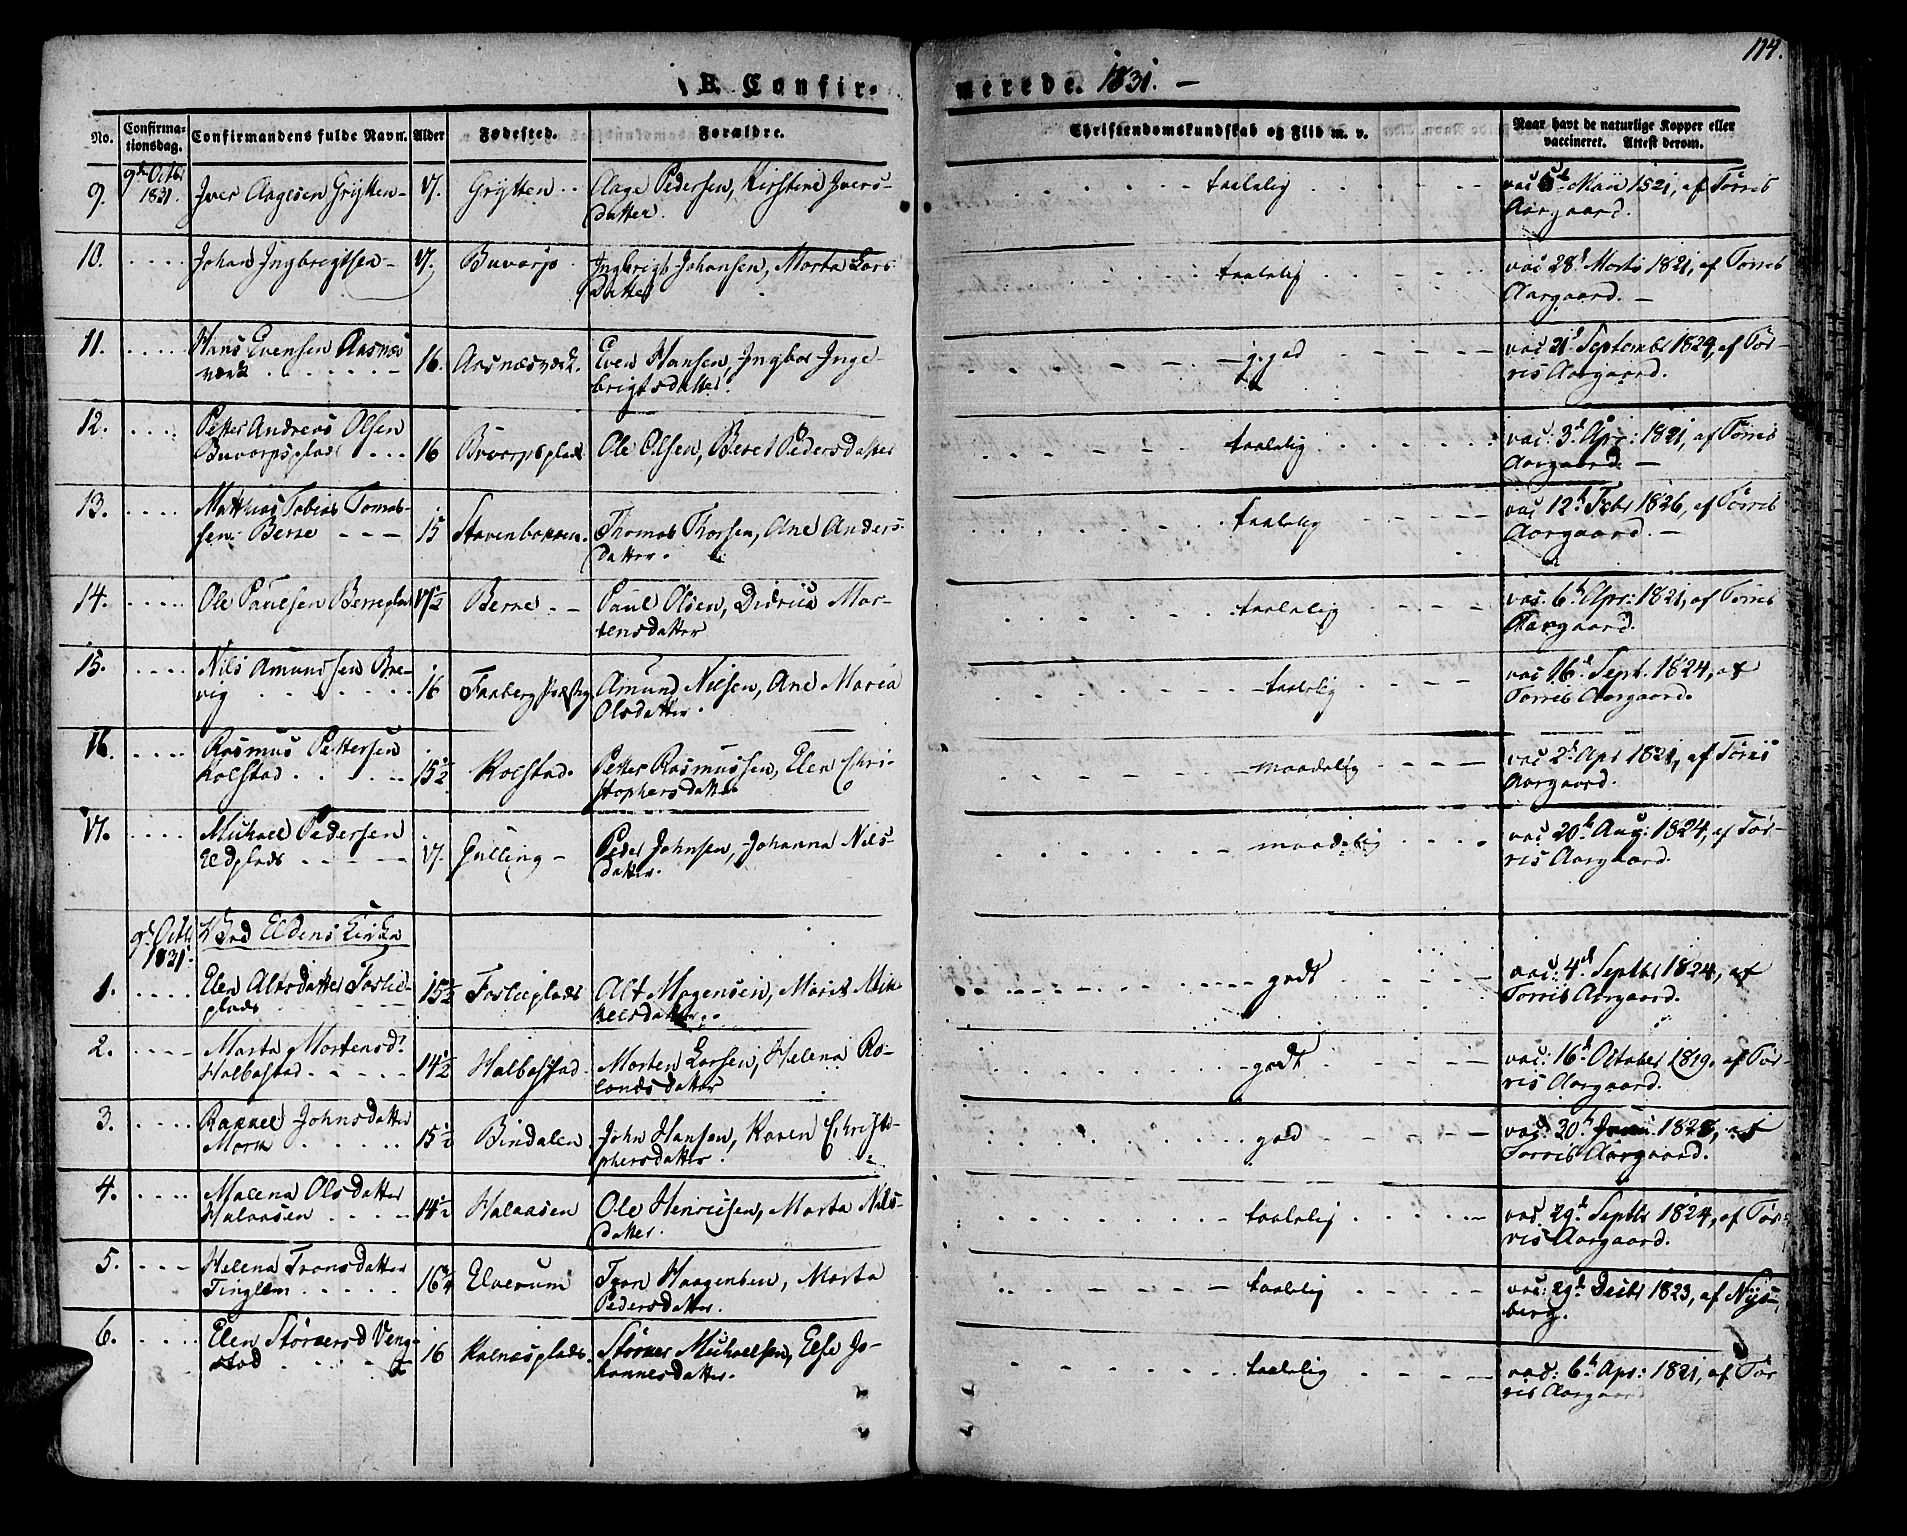 114.
B. Confirmerede. 1831. -
No. Confirmationsdag. Confirmandens fulde Navn. Alder Fødested. Forældre. Christendomskundskab og Flid m. v. Naar havt de naturlige Kopper eller vaccineret. Attest derom.
9. 9d Octbr 1831. Iver Aagesen Grÿtten 17. Grÿtten Aage Pedersen, Kirstine Ivers-
datter. taalelig vac Maii 1821, af Tørris
Aargaard.
10. Johan Ingbregtsen 17. Buvarp Ingbrigt Johansen, Marta Lars
datter taalelig vac 28d Marts 1821, af Tørris
Aargaard. -
11. Hans Evensen Aasnæs
værk 16. Aasnæsværk. Even Hansen, Ingbor Inge-
brigtsdatter. - j. god vac 21d Septembr 1824, af Tør-
ris Aargaard.
12. Petter Andreas Olsen
Buvarpsplads 16 Buvarpsplads Ole Olsen, Beret Pedersdatter taalelig vac: 3d Apr: 1821, af Tørris
Aargaard. -
13. Mathias Tobias Tomas-
sen Berre 15 Stavenbakken. Thomas Thorsen, Ane Anders-
datter. taalelig vac 12t Febr 1826, af Tørris
Aargaard. -
14. Ole Paulsen Berreplads 17½ Berre Paul Olsen, Didrica Mor-
tensdatter taalelig vac. 6t Apr: 1821, af Tørris
Aargaard.
15. Nils Amundsen Bre-
vig 16 Faaberg Præstg Amund Nilsen, Ane Maria
Olsdatter. taalelig vac 16d Sept. 1824, af
Torris Aargaard.
16. Rasmus Pettersen
Kolstad 15½ Kolstad. Petter Rasmussen, Elen Chri-
stophersdatter maadelig vac 2d Apr 1821, af Tørris
Aargaard.
17. Michael Pedersen
Eldplads 17. Gulling Peder Johnsen, Johanna Nils-
datter. maadelig vac: 20d Aug: 1824, af Tør-
ris Aargaard.
9d Octbr 1831. Ved Eldens Kirke
1. Elen Altsdatter Foslie-
plads 15½ Foslieplads Alt Mogensen, Marit Mik
kelsdatter. godt vac: 4d Septbr 1824, af
Torris Aargaard.
2. Marta Mortensd.
Halbostad 14½ Halbostad Morten Larsen, Helena Ro-
landsdatter godt vac: 16d October 1819, af Tør-
ris Aargaard.
3. Rakkel Johnsdatter
Mork 15½ Bindalen John Hansen, Karen Christo-
phersdatter. god vac 20t 1828, af
Torris Aargaard.
4. Malena Olsdatter
Halaasen 14½ Halaasen Ole Henricsen, Marta Nils-
datter. taalelig vac. 29d Septbr 1824, af Tør-
ris Aargaard.
5. Helena Tronsdatter
Tinglem 16¾ Elverum Tron Haagensen, Marta
Pedersdatter. taalelig vac: 29d Decbr 1823, af Nÿs-
berg.
6. Elen Størkersd Veng-
stad 16 Kalnesplads. Størker Michaelsen, Else Jo-
hannesdatter. taalelig vac: 6t Apr: 1821, af Tør-
ris Aargaard